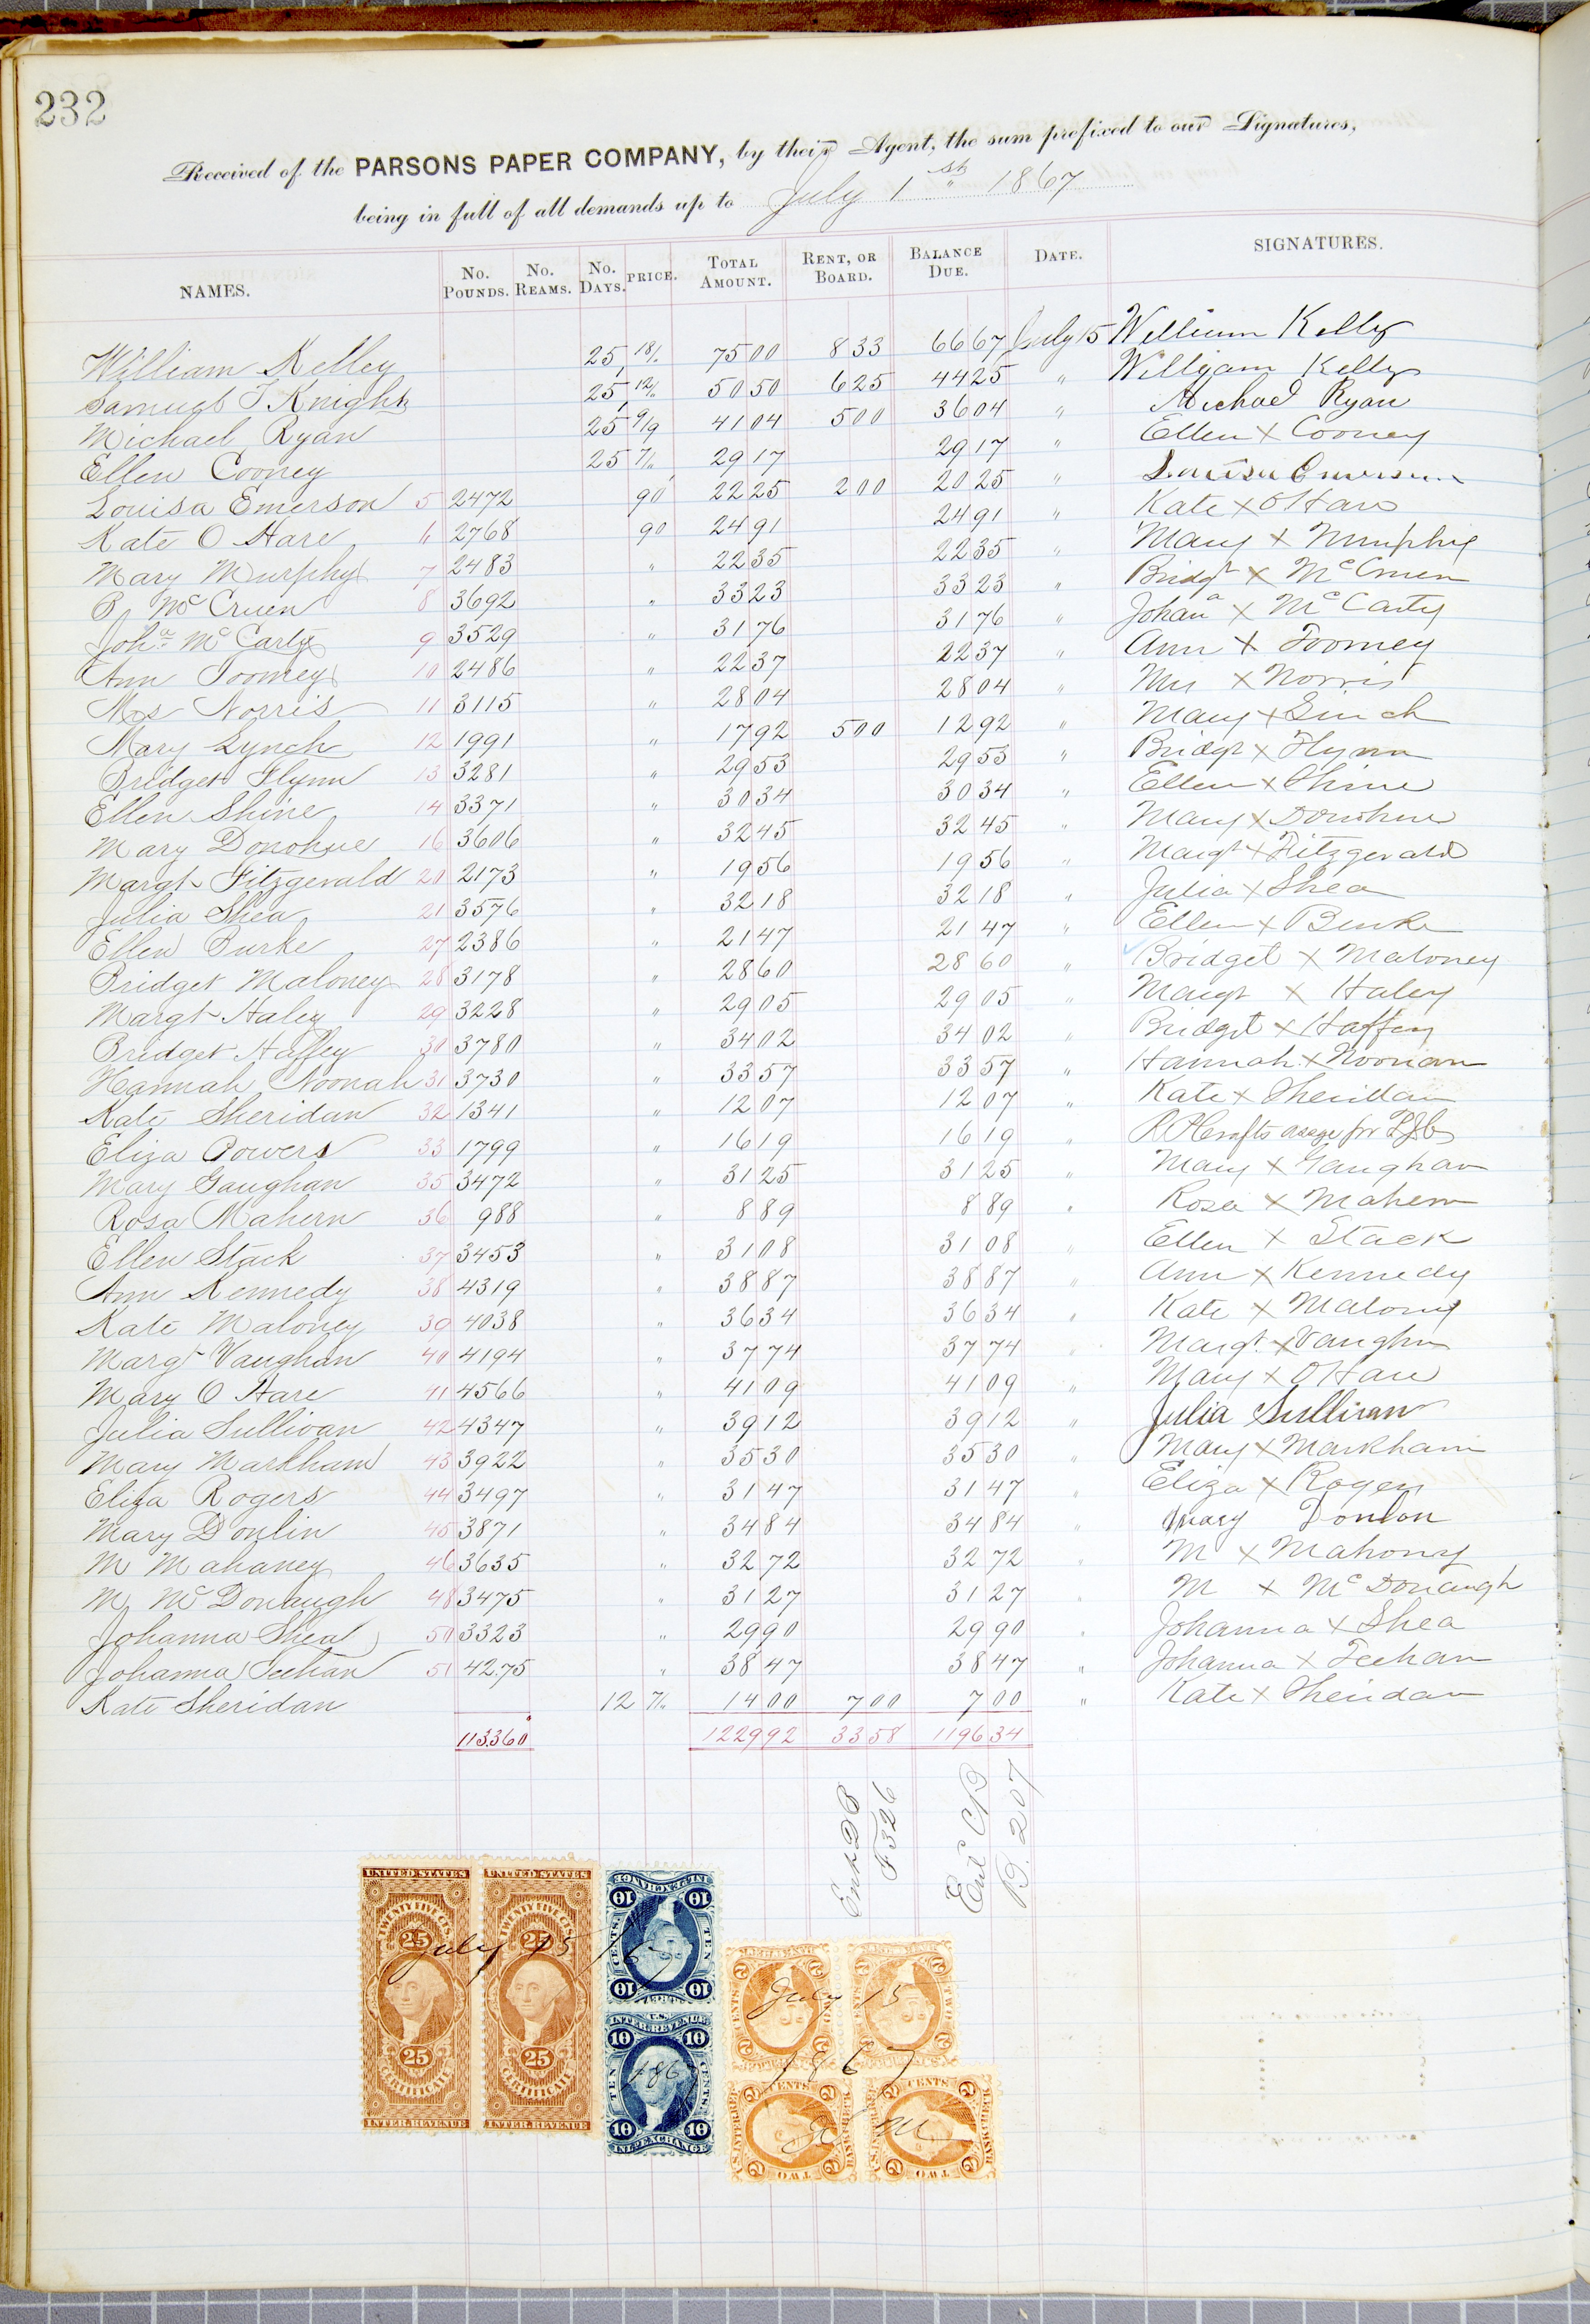 232
Received of the PARSONS PAPER COMPANY, by their Agent, the sum prefixed to our Signatures,
being in full of all demands up to July 1st 1867
NAMES. No. Pounds. No. Reams. No. Days. PRICE. Total Amount. Rent, or Board. Balance Due. Date. SIGNATURES.
William Kelley 25 18/ 75 00 8 33 66 67 July 15 William Kelly
Samuel F Knight 25 12/ 50 50 6 25 44 25 " William Kelly
Michael Ryan 25 9/9 41 04 5 00 36 04 " Michael Ryan
Ellen Cooney 25 7/ 29 17 29 17 " Ellen X Cooney
Louisa Emerson 5 2472 90 22 25 2 00 20 25 " Louisa Emerson
Kate O Hare 6 2768 90 24 91 24 91 " Kate X OHare
Mary Murphy 7 2483 " 22 35 22 35 " Mary X Murphy
B McCruen 8 3692 " 33 23 33 23 " Bridgt X McCruen
Joha McCarty 9 3529 " 31 76 31 76 " Johana X McCarty
Ann Toomey 10 2486 " 22 37 22 37 " Ann X Toomey
Mrs Norris 11 3115 " 28 04 28 04 " Mrs X Norris
Mary Lynch 12 1991 " 17 92 5 00 12 92 " Mary X Linch
Bridget Flynn 13 3281 " 29 53 29 53 " Bridgt X Flynn
Ellen Shine 14 3371 " 30 34 30 34 " Ellen X Shine
Mary Donohue 16 3606 " 32 45 32 45 " Mary X Donohue
Margt Fitzgerald 20 2173 " 19 56 19 56 " Margt X Fitzgerald
Julia Shea 21 3576 " 32 18 32 18 " Julia X Shea
Ellen Burke 27 2386 " 21 47 21 47 " Ellen X Burke
Bridget Maloney 28 3178 " 28 60 28 60 " Bridget X Maloney
Margt Haley 29 3228 " 29 05 29 05 " Margt X Haley
Bridget Haffey 30 3780 " 34 02 34 02 " Bridget X Haffey
Hannah Noonan 31 3730 " 33 57 33 57 " Hannah X Noonan
Kate Sheridan 32 1341 " 12 07 12 07 " Kate X Sheridan
Eliza Powers 33 1799 " 16 19 16 19 " R P Crafts for
Mary Gaughan 35 3472 " 31 25 31 25 " Mary X Gaughan
Rosa Mahern 36 988 " 8 89 8 89 " Rosa X Mahern
Ellen Stack 37 3453 " 31 08 31 08 " Ellen X Stack
Ann Kennedy 38 4319 " 38 87 38 87 " Ann X Kennedy
Kate Maloney 39 4038 " 36 34 36 34 " Kate X Maloney
Margt Vaughan 40 4194 " 37 74 37 74 " Margt X Vaughn
Mary O Hare 41 4566 " 41 09 41 09 " Mary X OHare
Julia Sullivan 42 4347 " 39 12 39 12 " Julia Sullivan
Mary Markham 43 3922 " 35 30 35 30 " Mary X Markham
Eliza Rogers 44 3497 " 31 47 31 47 " Eliza X Rogers
Mary Donlin 45 3871 " 34 84 34 84 " Mary Donlon
M Mahaney 46 3635 " 32 72 32 72 " M X Mahony
M McDonaugh 48 3475 " 31 27 31 27 " M X McDonaugh
Johanna Shea 50 3323 " 29 90 29 90 " Johanna X Shea
Johanna Feehan 51 4275 " 38 47 38 47 " Johanna X Feehan
Kate Sheridan 12 7/ 14 00 7 00 7 00 " Kate X Sheridan
113360 1229 92 33 58 1196 34
Ent DB
F 326
Entd CB
P. 207
UNITED STATES UNITED STATES
TWENTY FIVE CTS. TWENTY FIVE CTS.
25 25
July 15 67
25 25
CERTIFICATE CERTIFICATE
INTER. REVENUE INTER. REVENUE
INL. EXCHANGE
10 10
TEN CENTS.
10 10
U.S.
INTER. REVENUE
10 10
TEN CENTS.
1867
10 10
INL. EXCHANGE
2 2 2 2
TWO CENTS TWO CENTS
July 15
1867
U.S. INTER. REV. BANK CHECK U.S. INTER. REV. BANK CHECK
2 2 2 2
TWO CENTS TWO CENTS